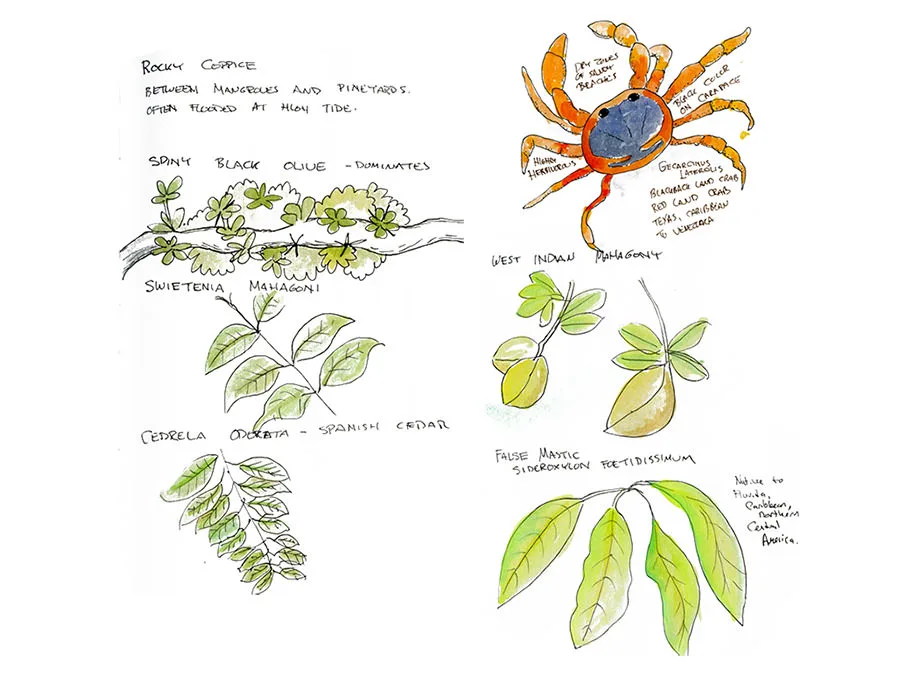 ROCKY COPPICE
BETWEEN MANGROVES AND PINEYARDS.
OFTEN FLOODED AT HIGH TIDE.
SPINY BLACK OLIVE - DOMINATES
SWIETENIA MAHAGONI
CEDRELA ODORATA - SPANISH CEDAR
DRY ZONES
OF SANDY
BEACHES
BLACK COLOR
ON CARAPACE
HIGHLY
HERBIVOROUS
GECARCINUS
LATERALIS
BLACKBACK LAND CRAB
RED LAND CRAB
TEXAS, CARIBBEAN
TO VENEZUELA
WEST INDIAN MAHAGONY
FALSE MASTIC
SIDEROXYLON FOETIDISSIMUM
Native to
Florida,
Caribbean,
Northern
Central
America.